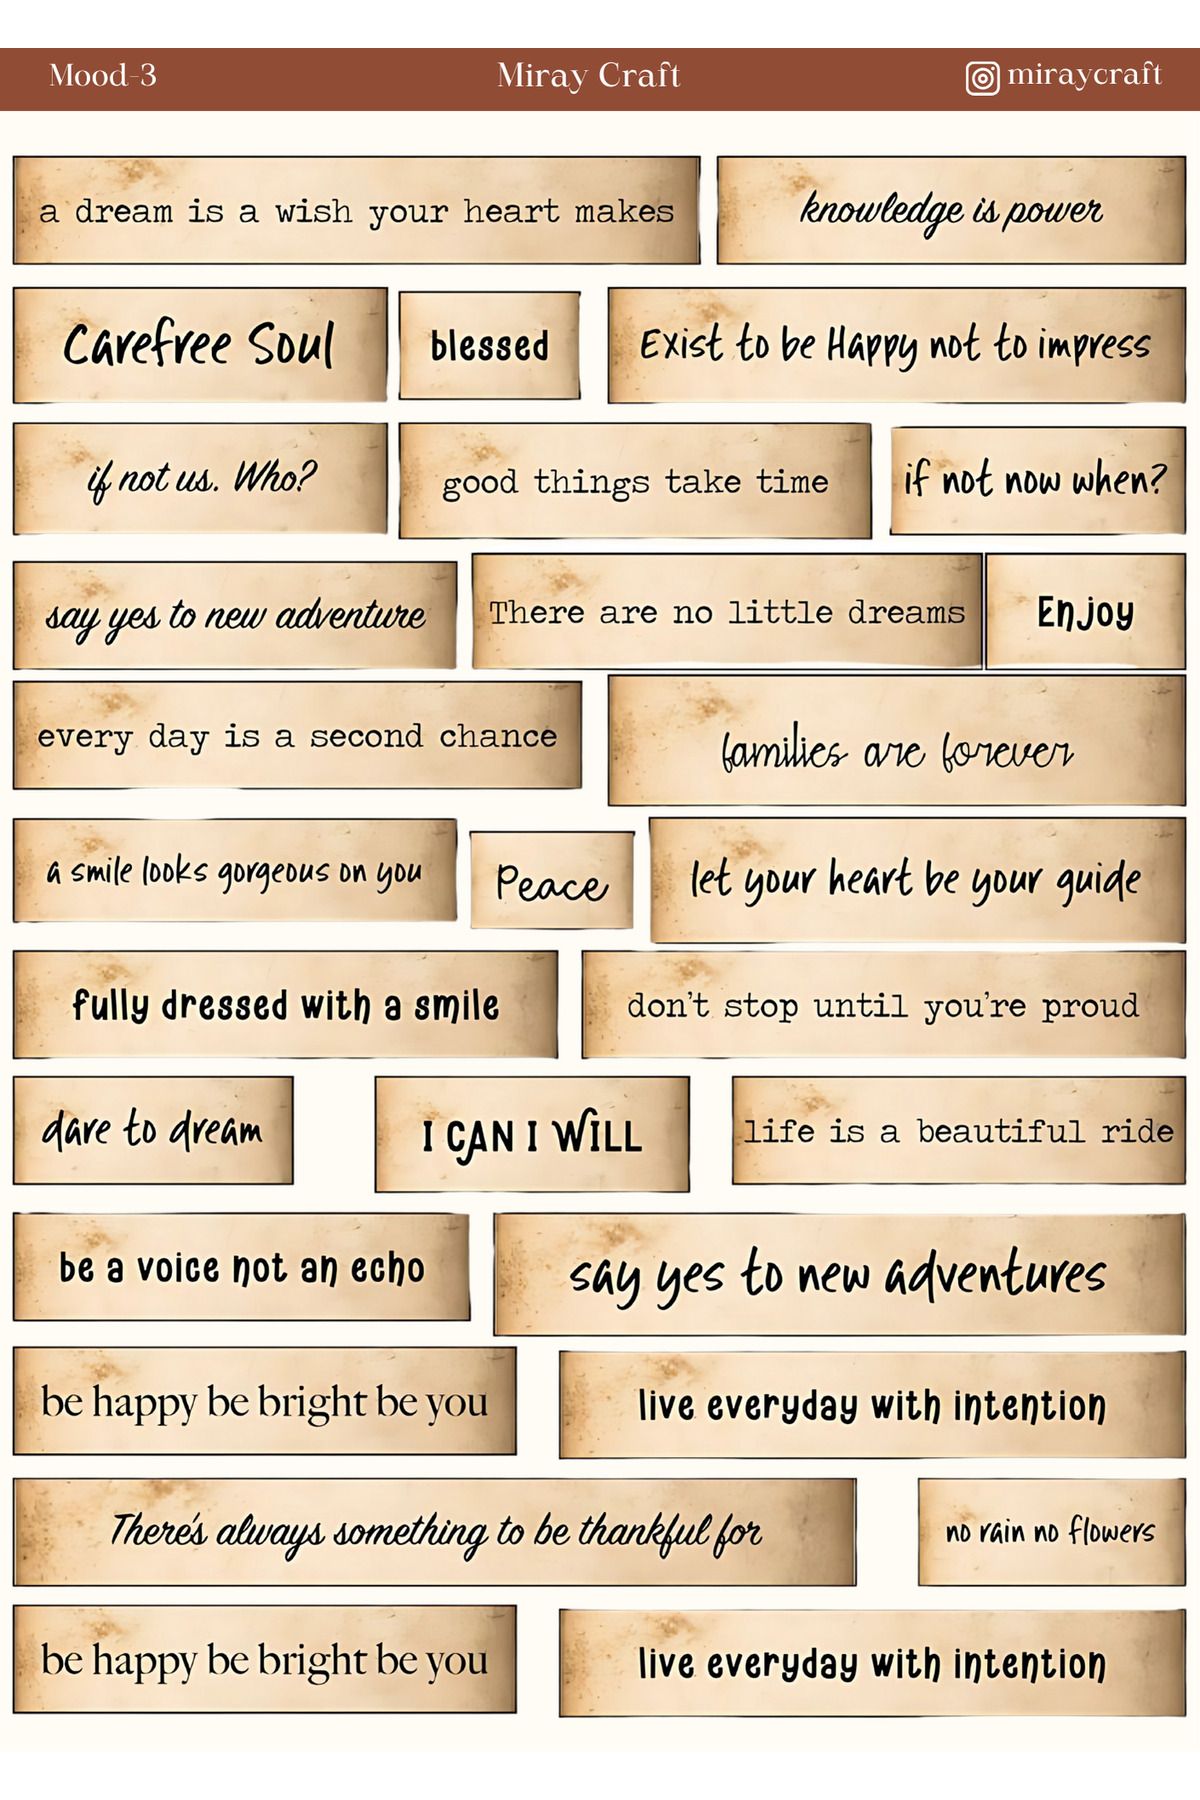 Mood-3
Miray Craft
miraycraft
a dream is a wish your heart makes
knowledge is power
Carefree Soul
blessed
Exist to be Happy not to impress
if not us. Who?
good things take time
if not now when?
say yes to new adventure
There are no little dreams
Enjoy
every day is a second chance
families are forever
a smile looks gorgeous on you
Peace
let your heart be your guide
fully dressed with a smile
don't stop until you're proud
dare to dream
I CAN I WILL
life is a beautiful ride
be a voice not an echo
say yes to new adventures
be happy be bright be you
live everyday with intention
There's always something to be thankful for
no rain no flowers
be happy be bright be you
live everyday with intention